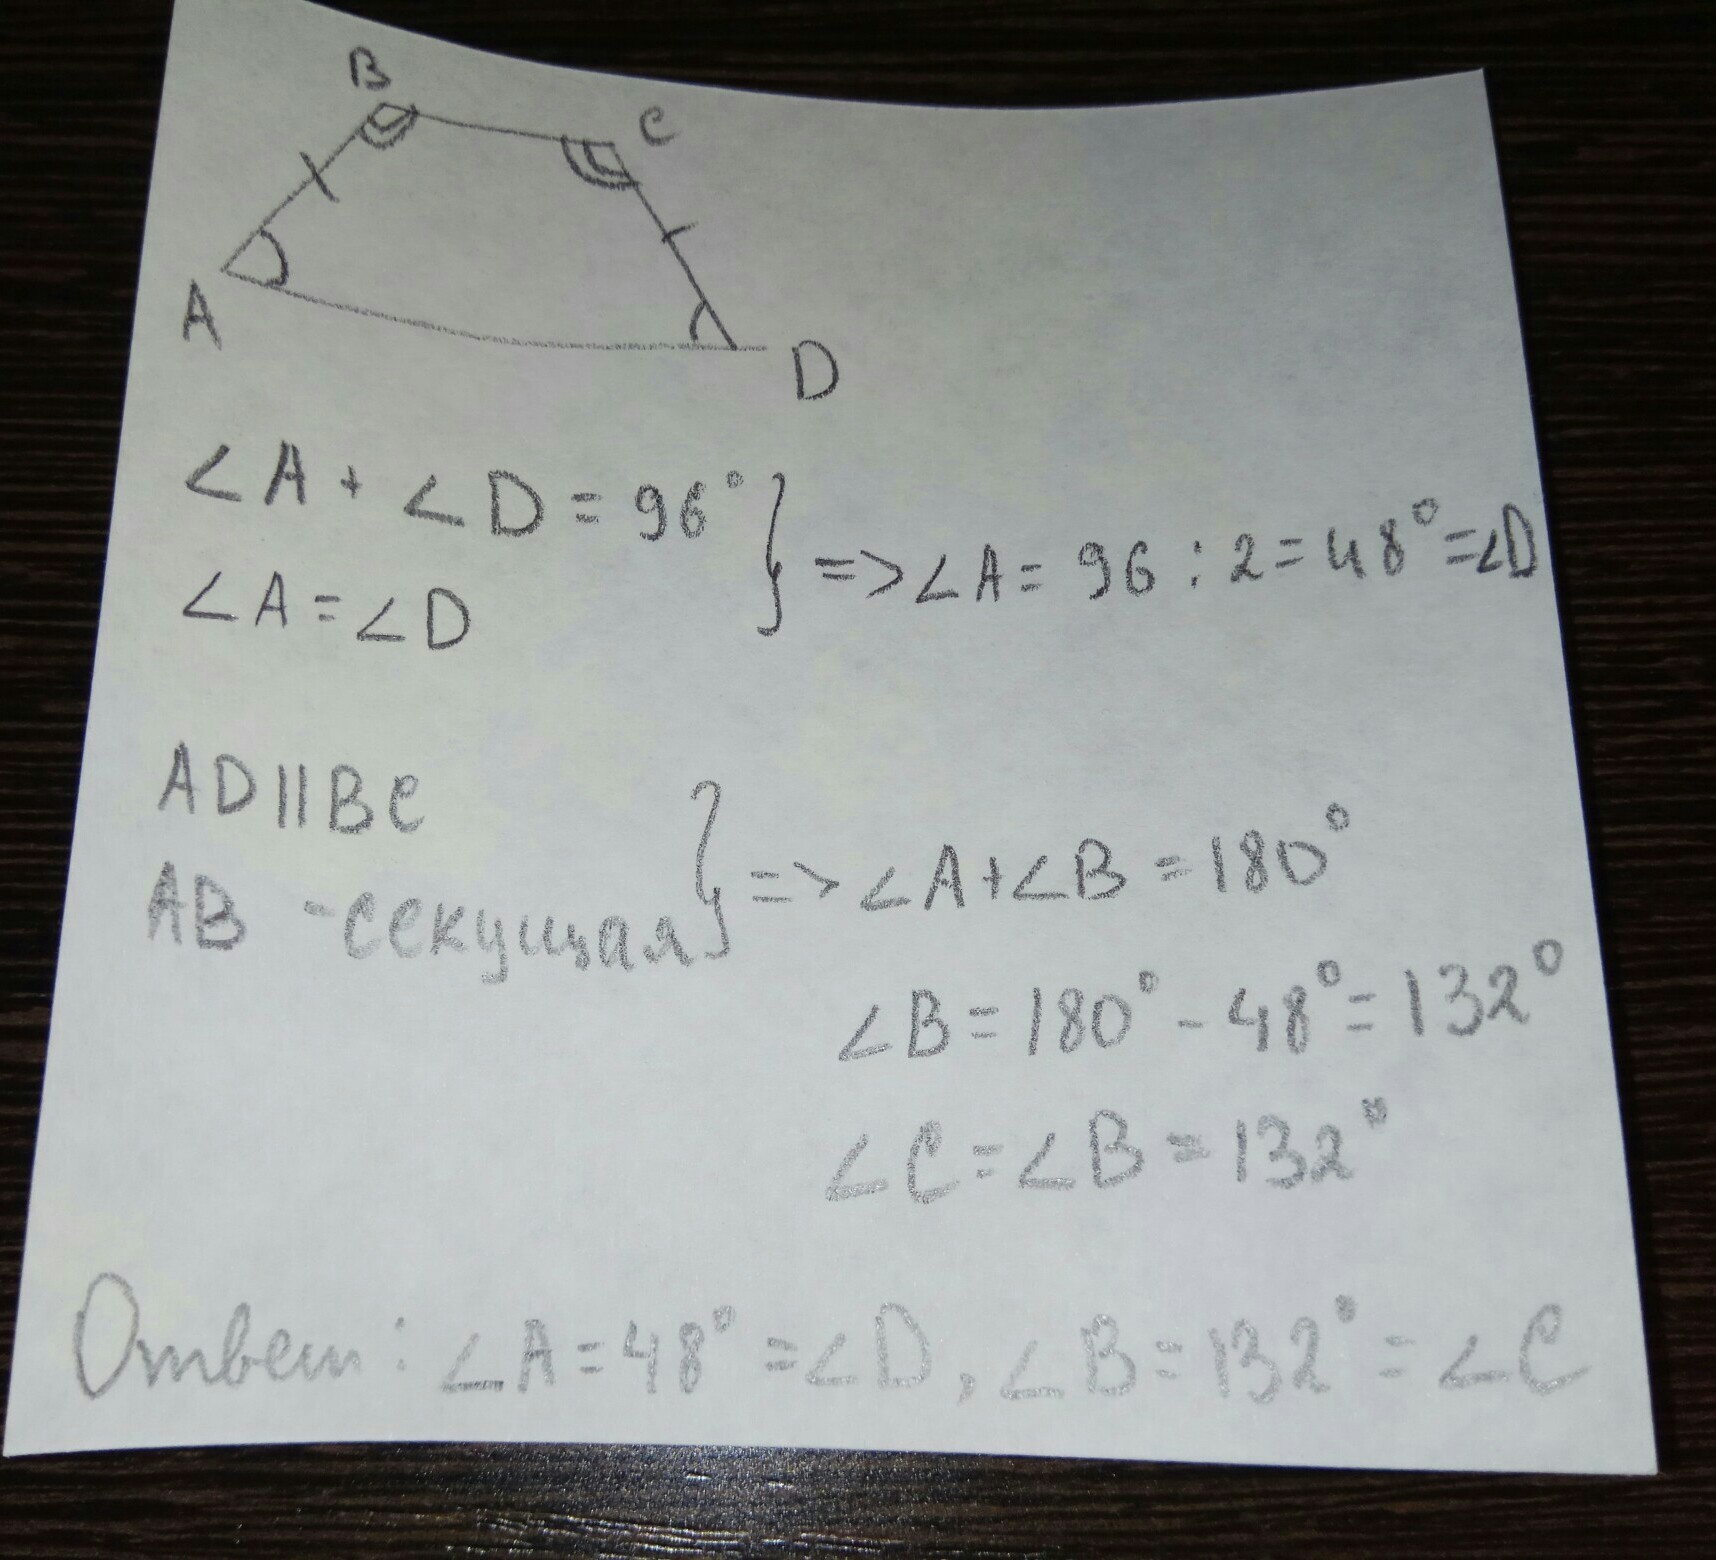 B
C
A
D
∠A + ∠D = 96°
∠A = ∠D
} => ∠A = 96 : 2 = 48° = ∠D
AD || BC
AB - секущая
} => ∠A + ∠B = 180°
∠B = 180° - 48° = 132°
∠C = ∠B = 132°
Ответ: ∠A = 48° = ∠D, ∠B = 132° = ∠C